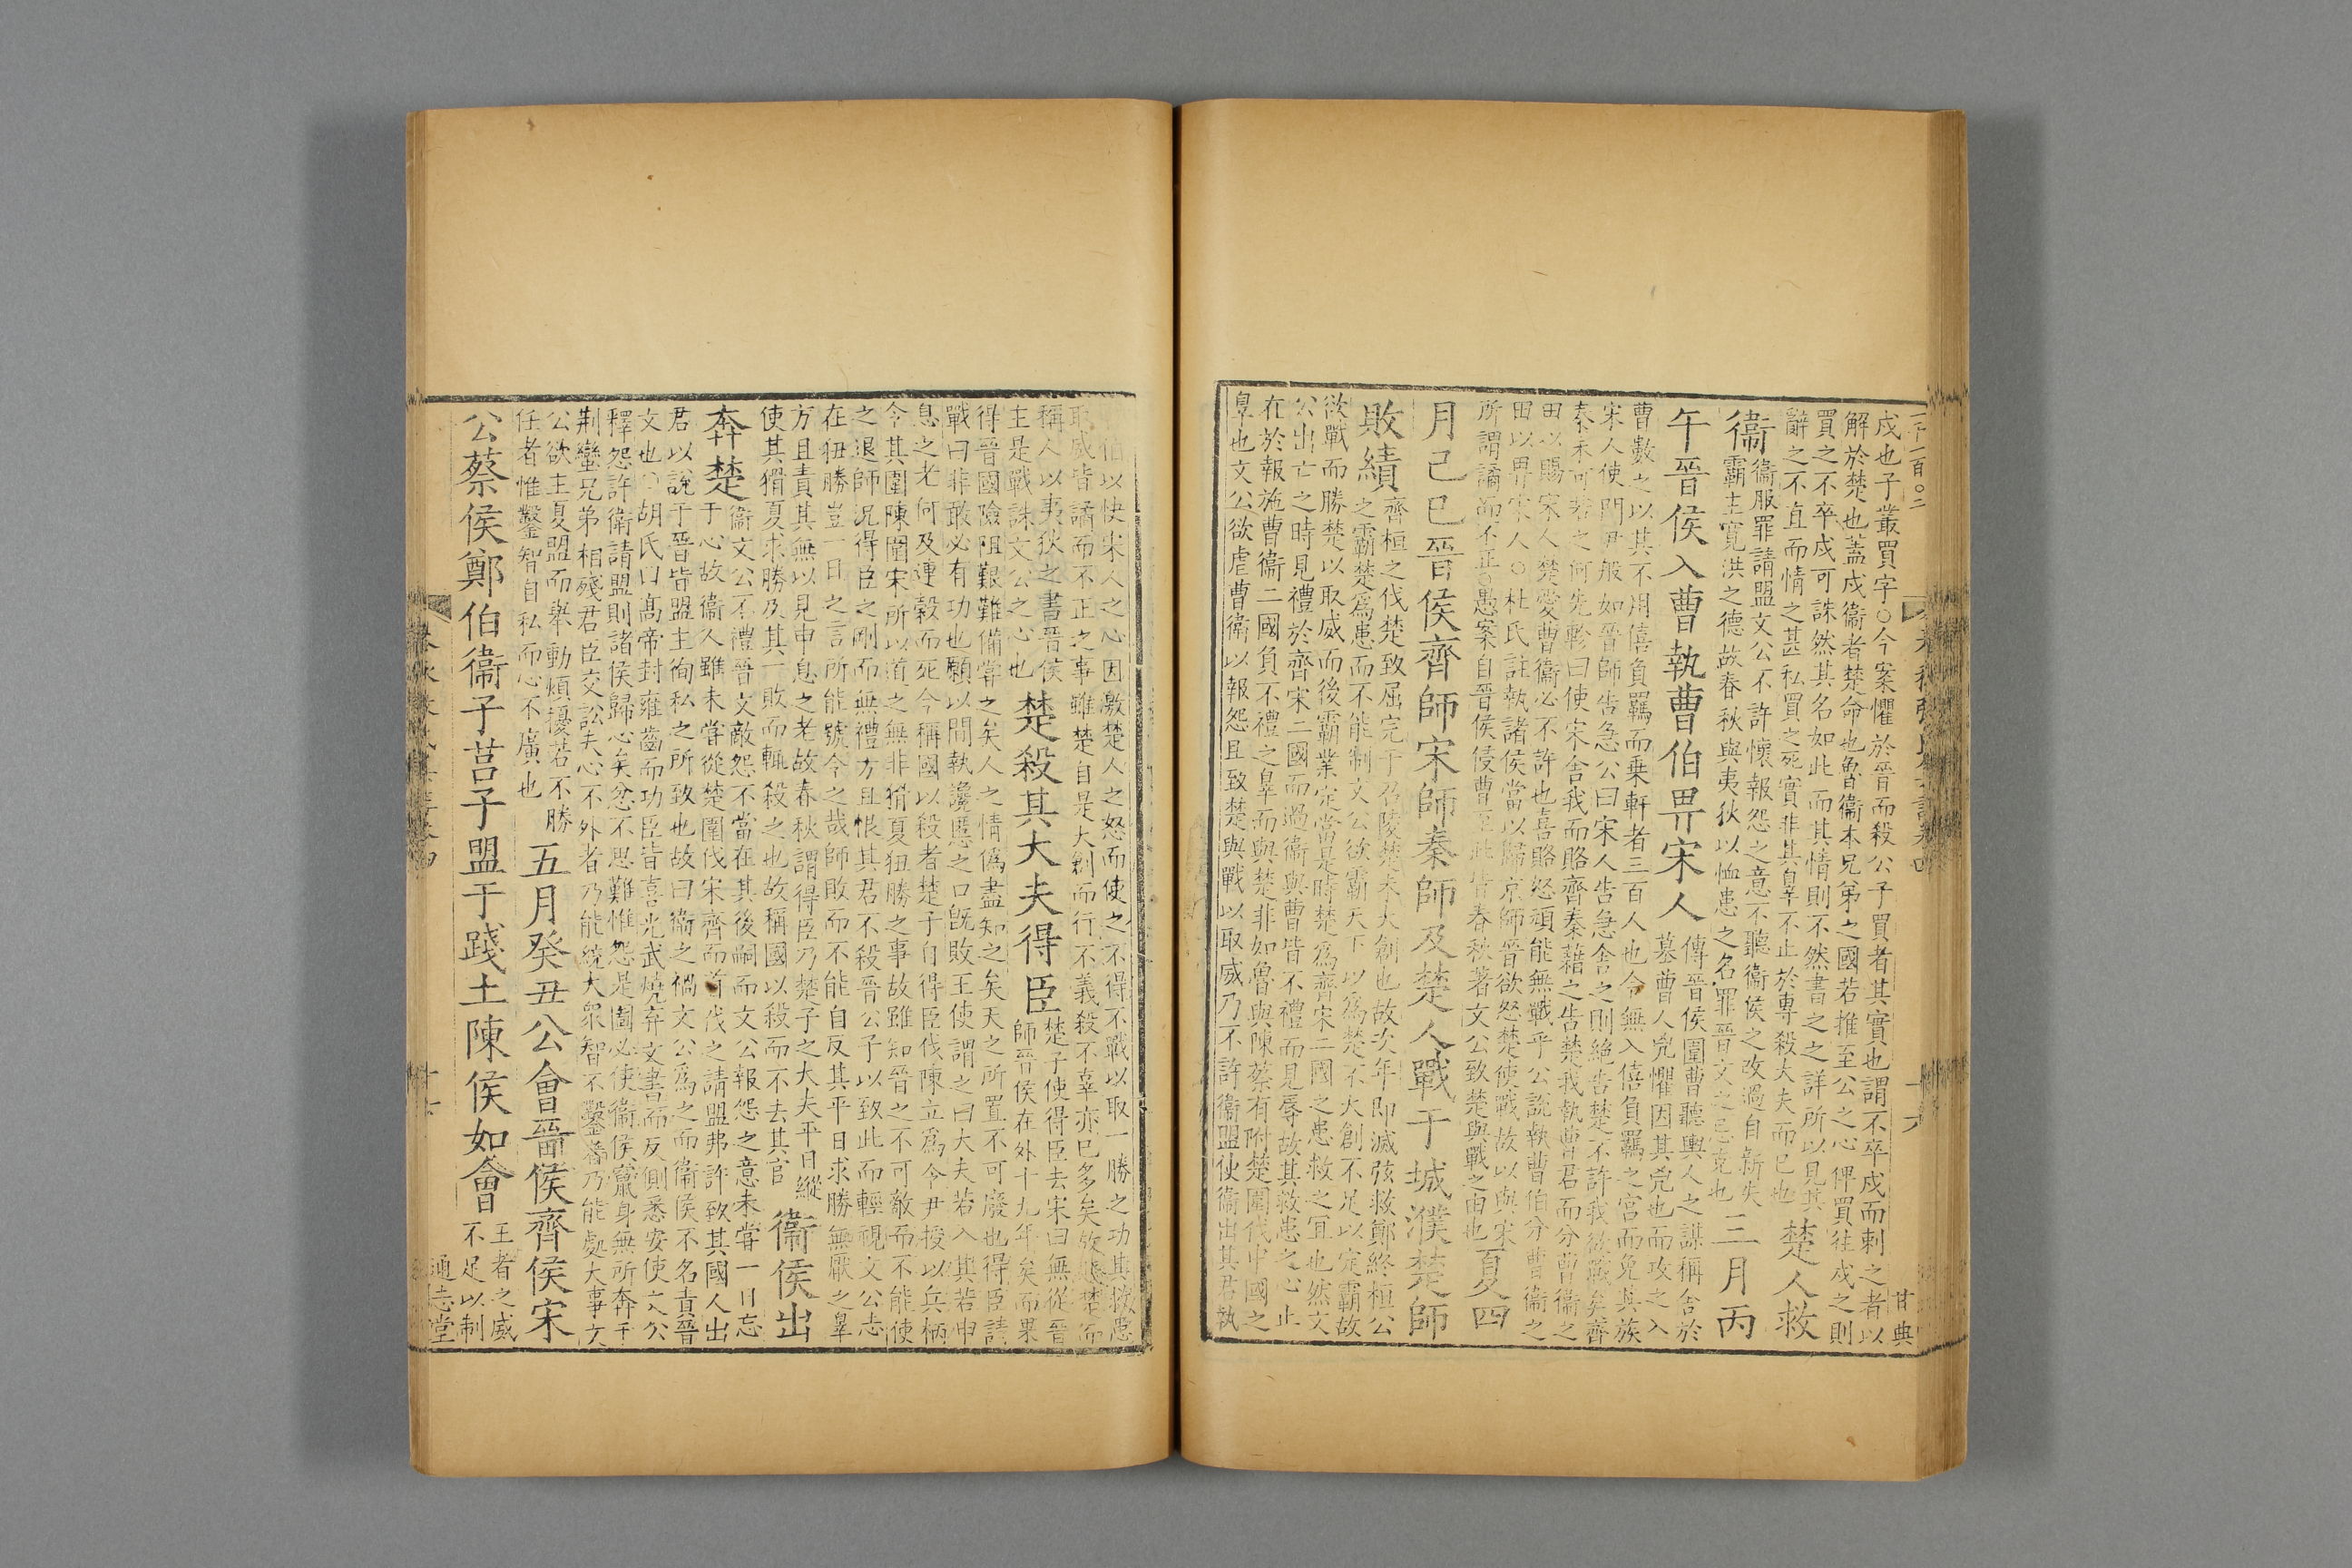 一千一百〇二
春秋張氏集註卷四
十六
甘典
戍也子叢買字○今案懼於晉而殺公子買者其實也謂不卒戍而刺之者以
解於楚也蓋戍衞者楚命也魯衞本兄弟之國若推至公之心俾買往戍之則
買之不卒戍可誅然其名如此而其情則不然書之之詳所以見其
辭之不直而情之甚私買之死實非其辠不止於専殺大夫而已也
楚人救
衞
衞服罪請盟文公不許懷報怨之意不聽衞侯之改過自新失
霸主寬洪之德故春秋與夷狄以恤患之名罪晉文之已克也
三月丙
午晉侯入曹執曹伯畀宋人
傳晉侯圍曹聽輿人之謀稱舍於
墓曹人兇懼因其兇也而攻之入
曹數之以其不用僖負羈而乗軒者三百人也令無入僖負羈之宮而免其族
宋人使門尹般如晉師告急公曰宋人告急舍之則絶告楚不許我欲戰矣齊
秦未可若之何先軫曰使宋舍我而賂齊秦藉之告楚我執曹君而分曹衞之
田以賜宋人楚愛曹衞必不許也喜賂怒頑能無戰乎公說執曹伯分曹衞之
田以畀宋人○杜氏註執諸侯當以歸京師晉欲怒楚使戰故以與宋
所謂譎而不正○愚案自晉侯侵曹至此皆春秋著文公致楚與戰之由也
夏四
月己巳晉侯齊師宋師秦師及楚人戰于城濮楚師
敗績
齊桓之伐楚致屈完于召陵楚未大創也故次年即滅弦救鄭終桓公
之霸楚爲患而不能制文公欲霸天下以爲楚不大創不足以定霸故
欲戰而勝楚以取威而後霸業定當是時楚爲齊宋二國之患救之宜也然文
公出亡之時見禮於齊宋二國而過衞與曹皆不禮而見辱故其救患之心止
在於報施曹衞二國負不禮之辠而與楚非如魯與陳蔡有附楚圍伐中國之
辠也文公欲虐曹衞以報怨且致楚與戰以取威乃不許衞盟使衞出其君執
伯以快宋人之心因激楚人之怒而使之不得不戰以取一勝之功其救患
取威皆譎而不正之事雖楚自是大創而行不義殺不辜亦已多矣故
稱人以夷狄之書晉侯
主是戰誅文公之心也
楚殺其大夫得臣
楚子使得臣去宋曰無從晉
師晉侯在外十九年矣而果
得晉國險阻艱難備嘗之矣人之情僞盡知之矣天之所置不可廢也得臣請
戰曰非敢必有功也願以間執讒慝之口旣敗王使謂之曰大夫若入其若申
息之老何及連穀而死今稱國以殺者楚子自得臣伐陳立爲令尹授以兵柄
今其圍陳圍宋所以道之無非猾夏狃勝之事故雖知晉之不可敵而不能使
之退師況得臣之剛而無禮方且恨其君不殺晉公子以致此而輕視文公志
在狃勝豈一日之言所能號令之哉師敗而不能自反其平日求勝無厭之辠
方且責其無以見申息之老故春秋謂得臣乃楚子之大夫平日縱
使其猾夏求勝乃其一敗而輒殺之也故稱國以殺而不去其官
衞侯出
奔楚
衞文公不禮晉文敵怨不當在其後嗣而文公報怨之意未嘗一日忘
于心故衞人雖未嘗從楚圍伐宋齊而首伐之請盟弗許致其國人出
君以說于晉皆盟主徇私之所致也故曰衞之禍文公爲之而衞侯不名責晉
文也○胡氏曰髙帝封雍齒而功臣皆喜光武燒弃文書而反側悉安使文公
釋怨許衞請盟則諸侯歸心矣忿不思難惟怨是圖必使衞侯竄身無所奔于
荆蠻兄弟相殘君臣交訟夫心不外者乃能統大衆智不鑿者乃能處大事文
公欲主夏盟而舉動煩擾若不勝
任者惟鑿智自私而心不廣也
五月癸丑公會晉侯齊侯宋
公蔡侯鄭伯衞子莒子盟于踐土陳侯如會
王者之威
不足以制
通志堂